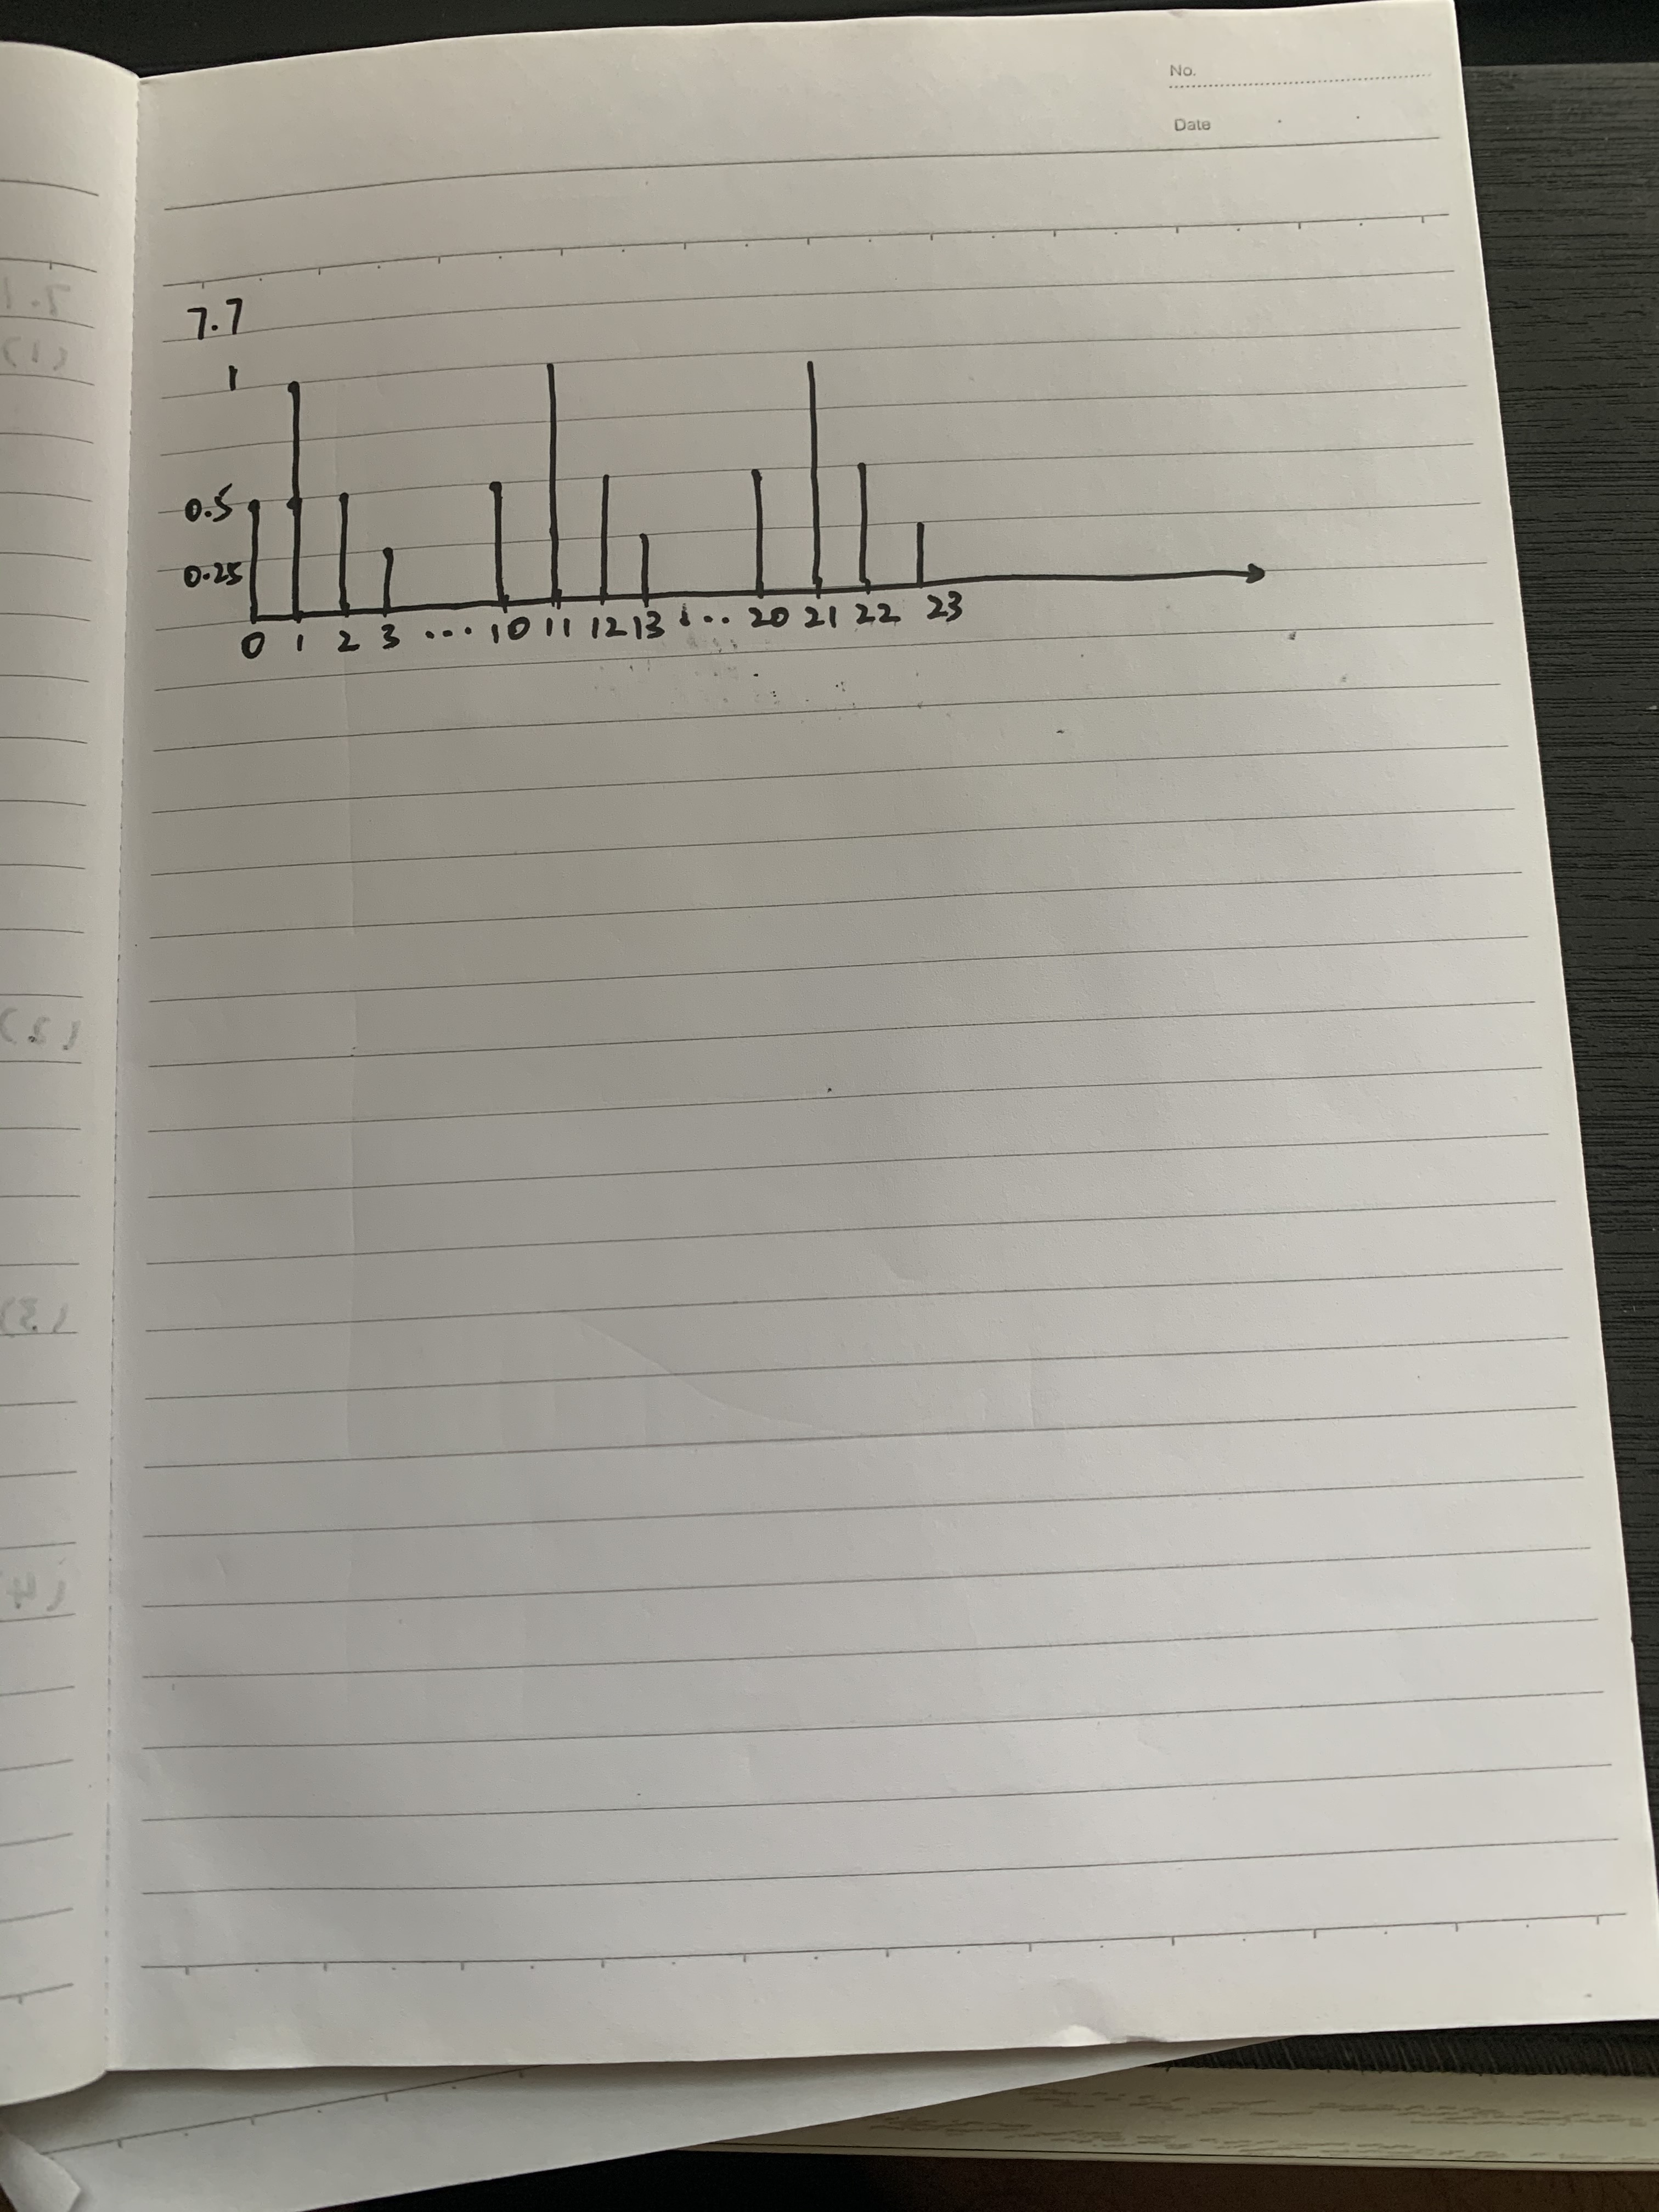 No.
Date
7.7
1
0.5
0.25
0 1 2 3 ... 10 11 12 13 ... 20 21 22 23
7.1
(1)
(2)
(3)
(4)